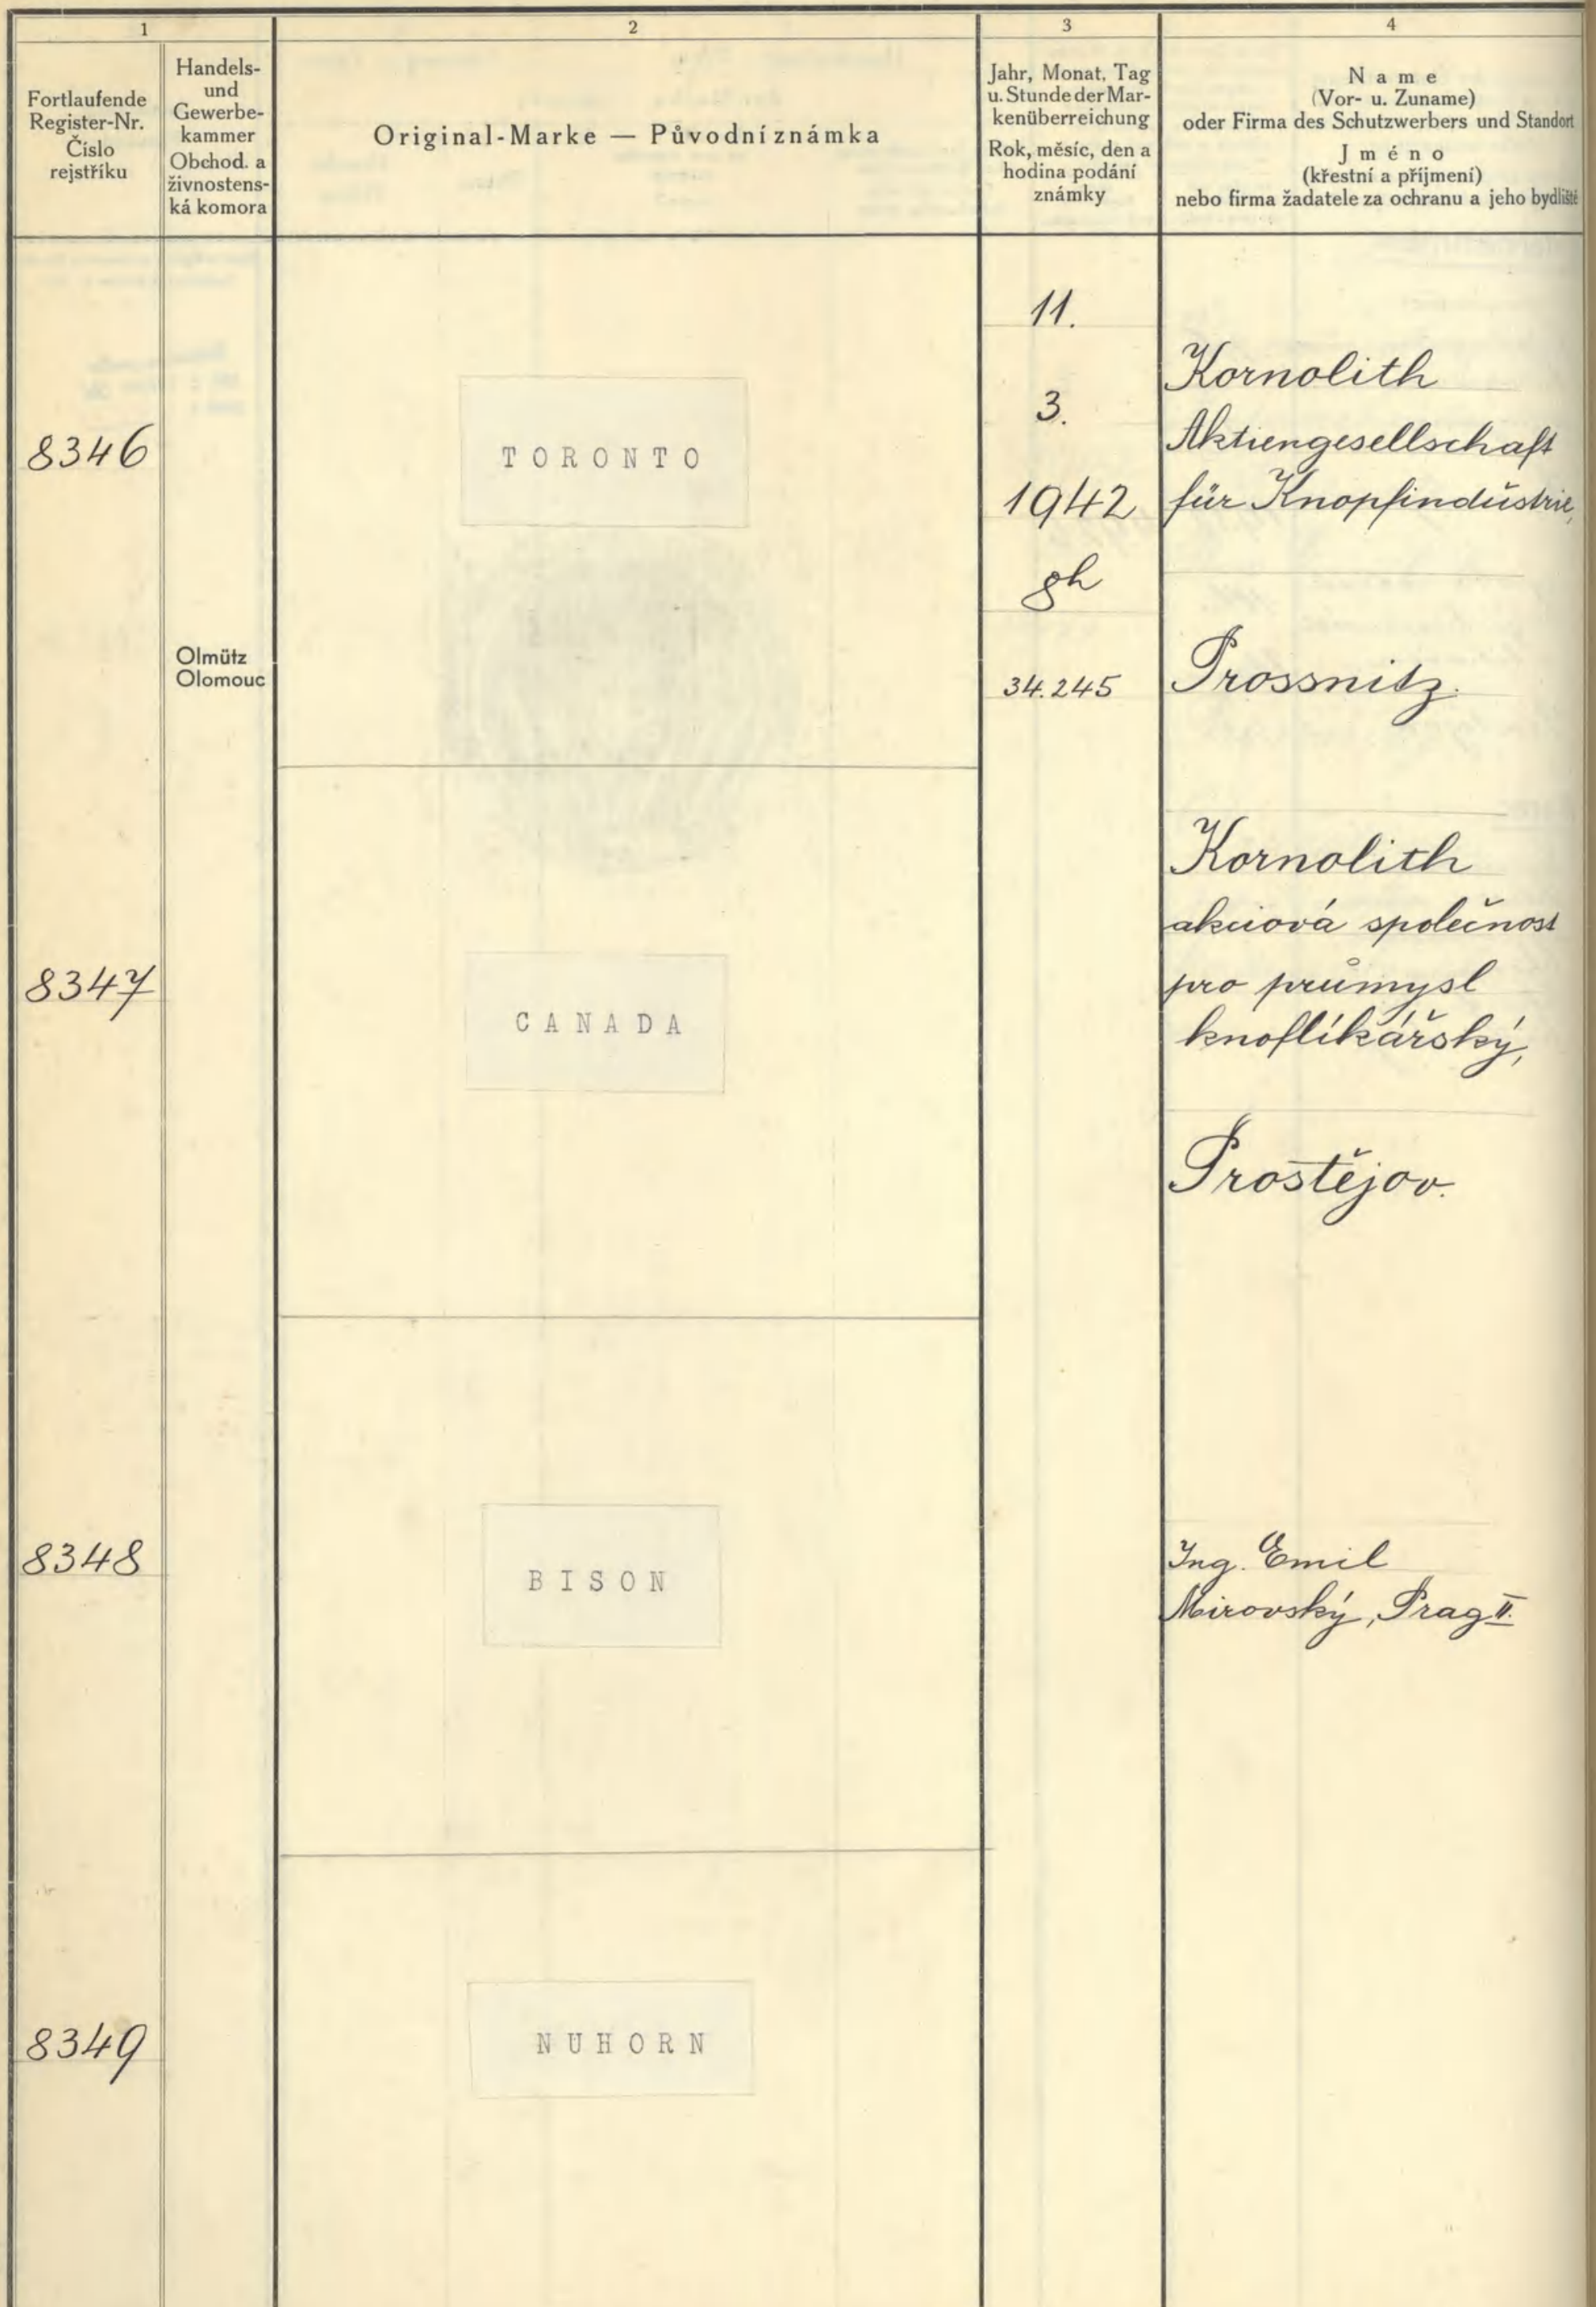 1
2
3
4
Fortlaufende
Register-Nr.
Číslo
rejstříku
Handels-
und
Gewerbe-
kammer
Obchod. a
živnostens-
ká komora
Original-Marke — Původní známka
Jahr, Monat, Tag
u. Stunde der Mar-
kenüberreichung
Rok, měsíc, den a
hodina podání
známky
Name
(Vor- u. Zuname)
oder Firma des Schutzwerbers und Standort
Jméno
(křestní a příjmení)
nebo firma žadatele za ochranu a jeho bydliště
8346
Olmütz
Olomouc
TORONTO
11.
3.
1942
8h
34.245
Kornolith
Aktiengesellschaft
für Knopfindustrie,
Prossnitz.
8347
CANADA
Kornolith
akciová společnost
pro průmysl
knoflíkářský,
Prostějov.
8348
BISON
Ing. Emil
Mirovský, Prag II.
8349
NUHORN